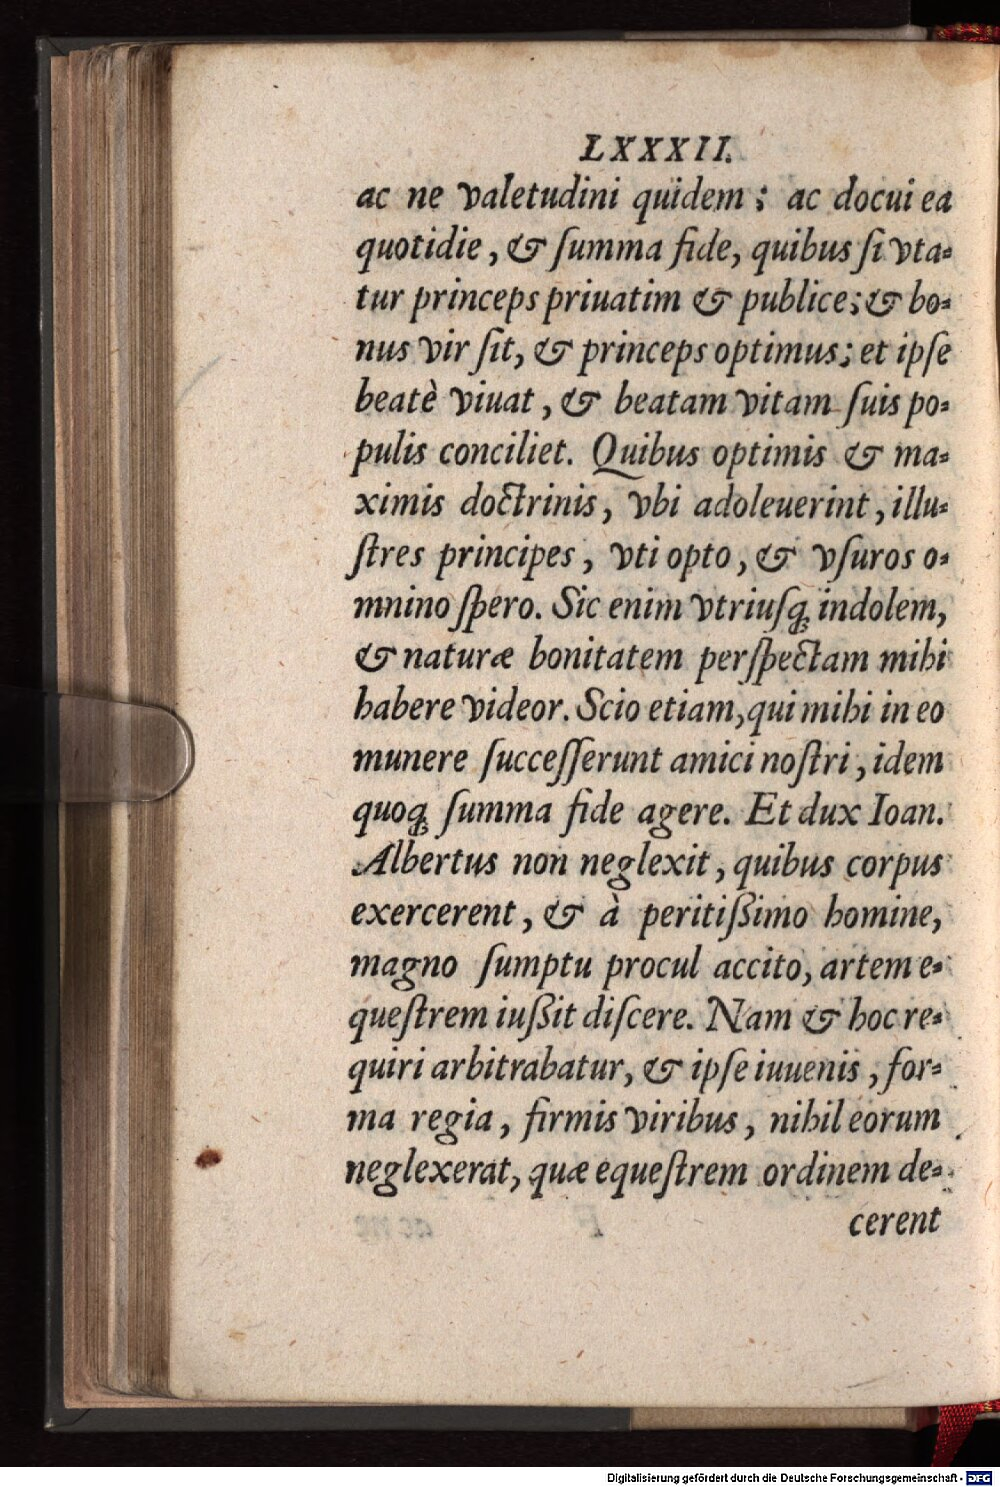 LXXXII.
ac ne valetudini quidem; ac docui ea
quotidie, & ſumma fide, quibus ſi vta-
tur princeps priuatim & publice; & bo-
nus vir ſit, & princeps optimus; et ipſe
beatè viuat, & beatam vitam ſuis po-
pulis conciliet. Quibus optimis & ma-
ximis doctrinis, vbi adoleuerint, illu-
ſtres principes, vti opto, & vſuros o-
mnino ſpero. Sic enim vtriuſq; indolem,
& naturæ bonitatem perſpectam mihi
habere videor. Scio etiam, qui mihi in eo
munere ſucceſſerunt amici noſtri, idem
quoq; ſumma fide agere. Et dux Ioan.
Albertus non neglexit, quibus corpus
exercerent, & à peritißimo homine,
magno ſumptu procul accito, artem e-
queſtrem iußit diſcere. Nam & hoc re-
quiri arbitrabatur, & ipſe iuuenis, for-
ma regia, firmis viribus, nihil eorum
neglexerat, quæ equeſtrem ordinem de-
cerent
Digitalisierung gefördert durch die Deutsche Forschungsgemeinschaft - DFG